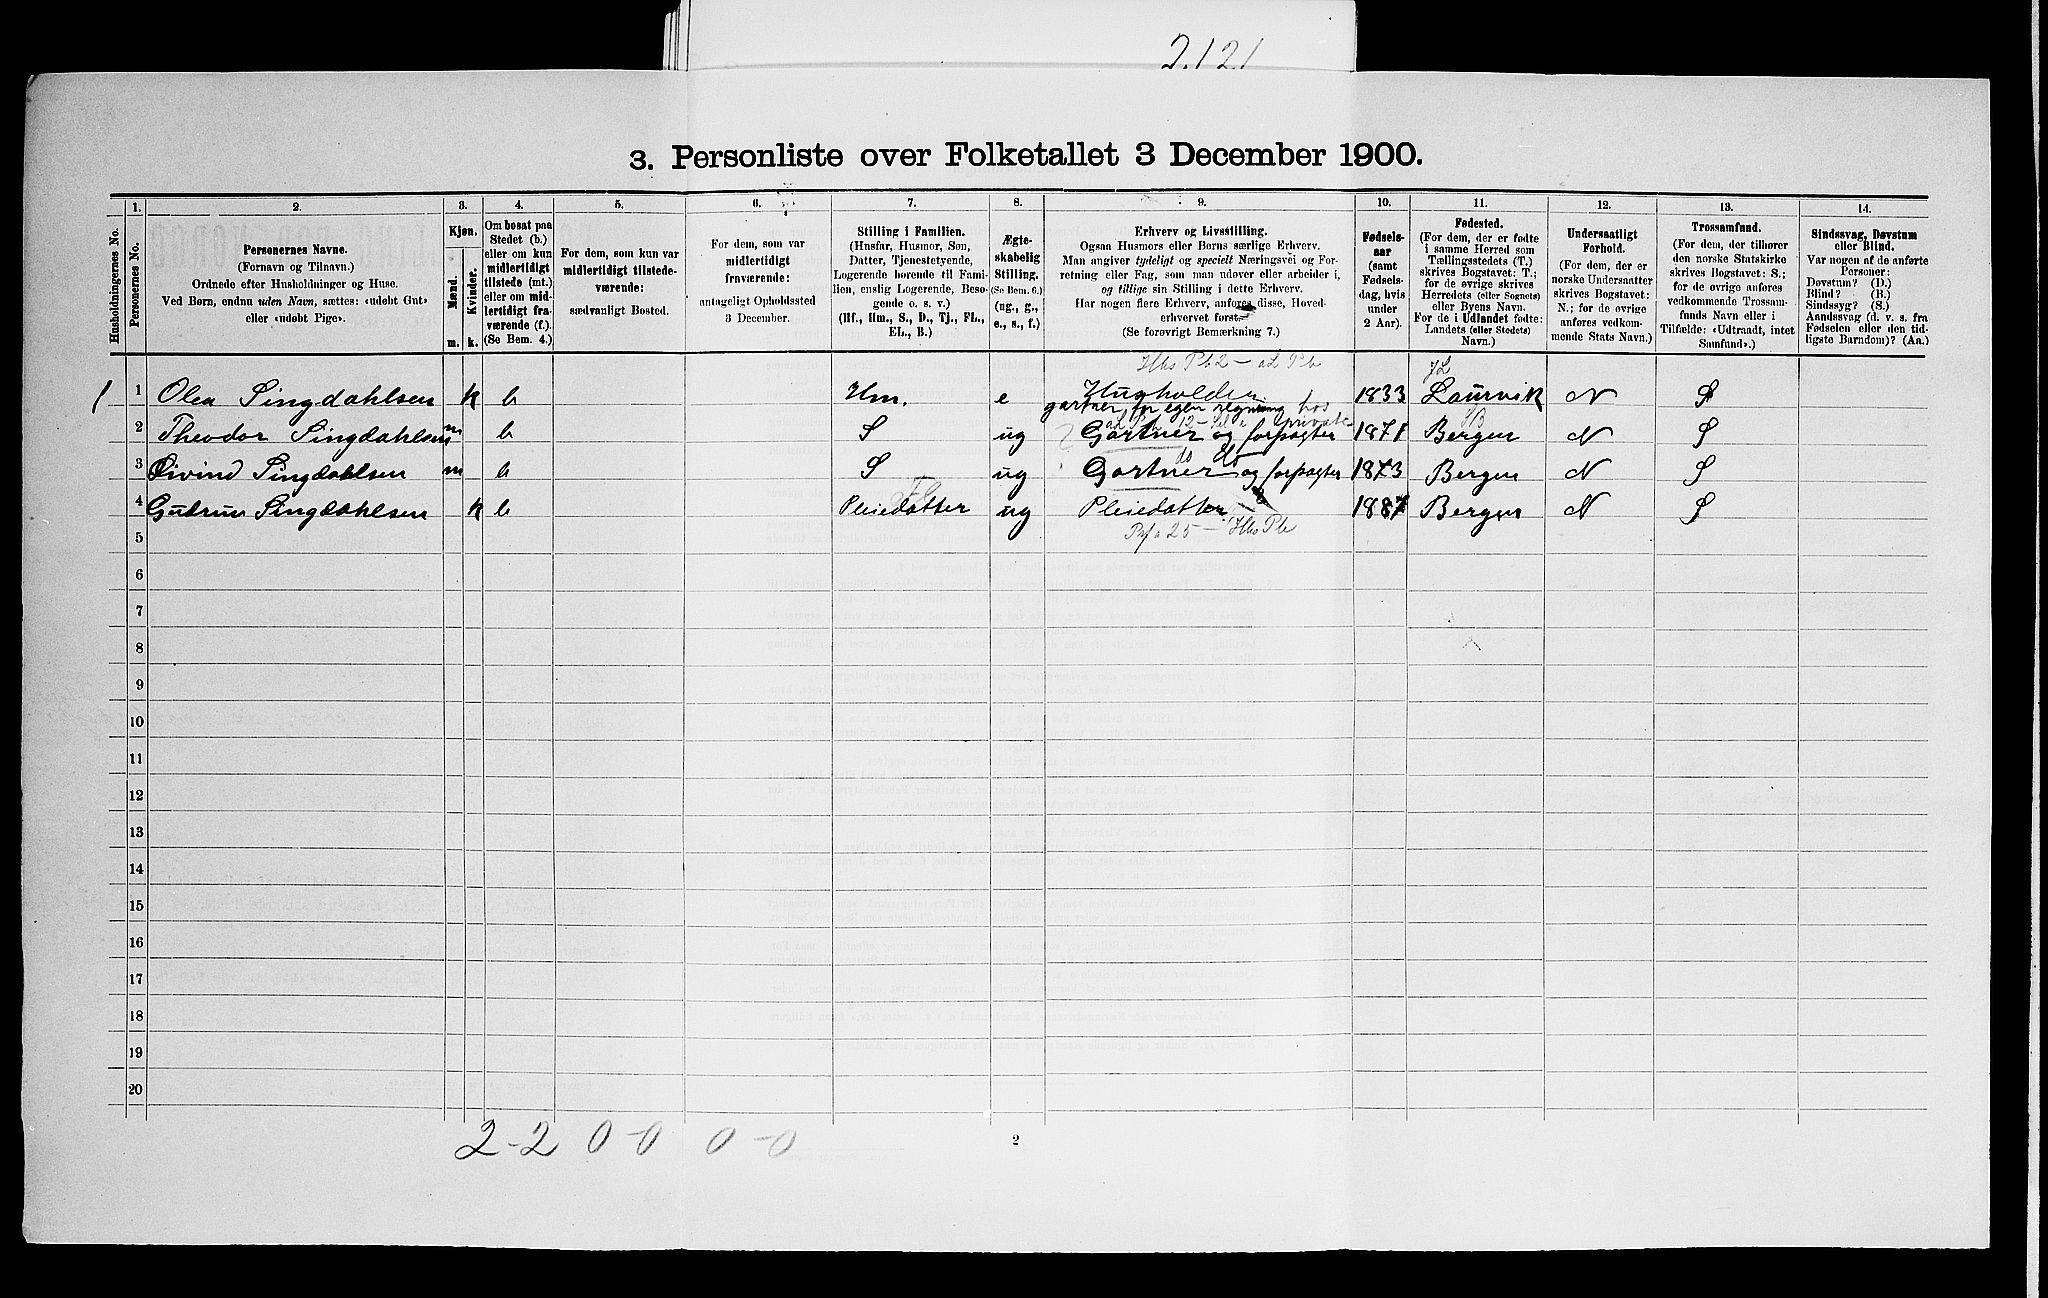 2.121
3. Personliste over Folketallet 3 December 1900.
1. 2. 3. 4. 5. 6. 7. 8. 9. 10. 11. 12. 13. 14.
Husholdningernes No.
Personernes No.
Personernes Navne.
(Fornavn og Tilnavn.)
Ordnede efter Husholdninger og Huse.
Ved Børn, endnu uden Navn, sættes: «udøbt Gut»
eller «udøbt Pige».
Kjøn.
Mænd.
Kvinder.
m. k.
Om bosat paa
Stedet (b.)
eller om kun
midlertidigt
tilstede (mt.)
eller om mid-
lertidigt fra-
værende (f.).
(Se Bem. 4.)
For dem, som kun var
midlertidigt tilstede-
værende:
sædvanligt Bosted.
For dem, som var
midlertidigt
fraværende:
antageligt Opholdssted
3 December.
Stilling i Familien.
(Husfar, Husmor, Søn,
Datter, Tjenestetyende,
Logerende hørende til Fami-
lien, enslig Logerende, Besø-
gende o. s. v.)
(Hf., Hm., S., D., Tj., FL.,
EL., B.)
Ægte-
skabelig
Stilling.
(Se Bem. 6.)
(ug., g.,
e., s., f.)
Erhverv og Livsstilling.
Ogsaa Husmors eller Børns særlige Erhverv.
Man angiver tydeligt og specielt Næringsvei og For-
retning eller Fag, som man udøver eller arbeider i,
og tillige sin Stilling i dette Erhverv.
Har nogen flere Erhverv, anføres disse, Hoved-
erhvervet først.
(Se forøvrigt Bemærkning 7.)
Fødsels-
aar
(samt
Fødsels-
dag, hvis
under
2 Aar).
Fødested.
(For dem, der er fødte
i samme Herred som
Tællingsstedets (T.)
skrives Bogstavet: T.;
for de øvrige skrives
Herredets (eller Sognets)
eller Byens Navn.
For de i Udlandet fødte:
Landets (eller Stedets)
Navn.)
Undersaatligt
Forhold.
(For dem, der er
norske Undersaatter
skrives Bogstavet:
N.; for de øvrige
anføres vedkom-
mende Stats Navn.)
Trossamfund.
(For dem, der tilhører
den norske Statskirke
skrives Bogstavet: S.;
for de øvrige anføres
vedkommende Trossam-
funds Navn eller i
Tilfælde: «Udtraadt, intet
Samfund».)
Sindssvag, Døvstum
eller Blind.
Var nogen af de anførte
Personer:
Døvstum? (D.)
Blind? (B.)
Sindssyg? (S.)
Aandssvag (d. v. s. fra
Fødselen eller den tid-
ligste Barndom)? (Aa.)
1 1 Olea Singdahlsen k b Hm. e 1833 Laurvik N S
gartner, for egen regning hos private
2 Theodor Singdahlsen m b S ug Gartner og forpagter 1871 Bergen N S
3 Øivind Singdahlsen m b S ug Gartner og forpagter 1873 Bergen N S
4 Gudrun Singdahlsen k b Pleiedatter ug Pleiedatter 1887 Bergen N S
5
6
7
8
9
10
11
12
13
14
15
16
17
18
19
20
2-2 0-0 0-0
2